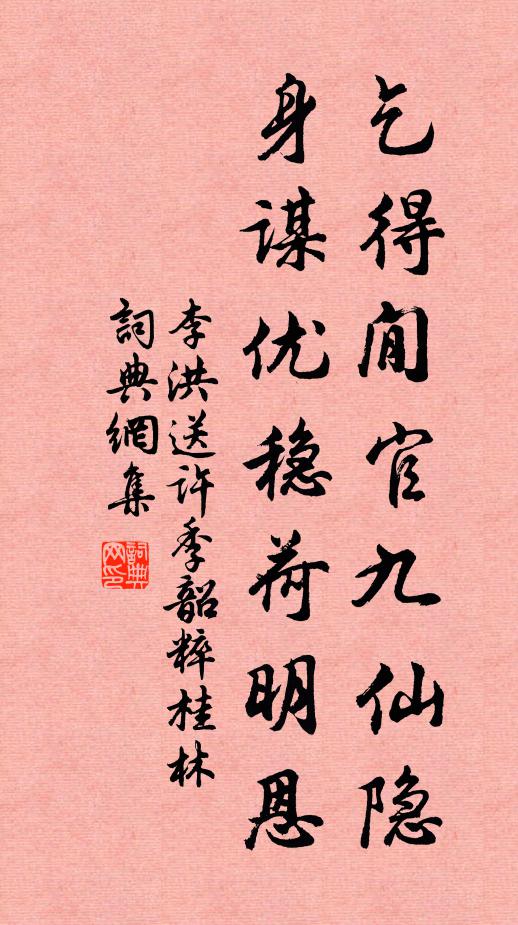 乞得闲官九仙隐
身谋优稳荷明恩
李洪送许季韶粹桂林
詞典網集
詞典网印